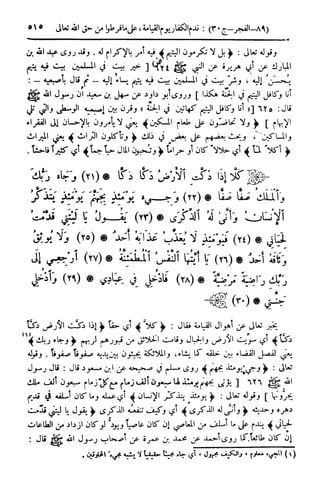 (٨٩ـالفجر-ج ٣٠) : ندم الكفار يوم القيامة، على ما فرطوا من حق الله تعالى ٥١٥
وقوله تعالى : ﴿ بل لا تكرمون اليتيم ﴾ فيه أمر بالإكرام له . وقد روى عبد الله بن
المبارك عن أبي هريرة عن النبي ﷺ [ خير بيت في المسلمين بيت فيه يتيم
يُحسَنُ إليه ، وشرّ بيت في المسلمين بيت فيه يتيم يساء إليه – ثم قال بأصبعيه – :
أنا وكافل اليتيم في الجنة هكذا ] وروى أبو داود عن سهل بن سعيد أن رسول الله ﷺ
قال : ٦٢٥ [ « أنا وكافل اليتيم كهاتين في الجنة » وقرن بين إصبعيه الوسطى والتي تلي
الإبهام ] ﴿ ولا تحاضّون على طعام المسكين ﴾ يعني لا يأمرون بالإحسان إلى الفقراء
والمساكين ، ويحث بعضهم على بعض في ذلك ﴿ وتأكلون التّراث ﴾ يعني الميراث
﴿ أكلاً لمّاً ﴾ أي حلالاً كان أو حراماً ﴿ وتُحبون المال حباً جمّاً ﴾ أي كثيراً فاحشاً .
كَلَّا إِذَا دُكَّتِ الْأَرْضُ دَكًّا دَكًّا (٢١) وَجَاءَ رَبُّكَ
وَالْمَلَكُ صَفًّا صَفًّا (٢٢) وَجِيءَ يَوْمَئِذٍ بِجَهَنَّمَ يَوْمَئِذٍ يَتَذَكَّرُ
الْإِنسَانُ وَأَنَّى لَهُ الذِّكْرَى (٢٣) يَقُولُ يَا لَيْتَنِي قَدَّمْتُ
لِحَيَاتِي (٢٤) فَيَوْمَئِذٍ لَا يُعَذِّبُ عَذَابَهُ أَحَدٌ (٢٥) وَلَا يُوثِقُ
وَثَاقَهُ أَحَدٌ (٢٦) يَا أَيَّتُهَا النَّفْسُ الْمُطْمَئِنَّةُ (٢٧) ارْجِعِي إِلَى
رَبِّكِ رَاضِيَةً مَرْضِيَّةً (٢٨) فَادْخُلِي فِي عِبَادِي (٢٩) وَادْخُلِي
جَنَّتِي (٣٠)
يخبر تعالى عن أهوال القيامة فقال : ﴿ كلّا ﴾ أي حقاً ﴿ إذا دكّت الأرض دكّاً
دكّاً ﴾ أي سوّيت الأرض والجبال وقامت الخلائق من قبورهم لربهم ﴿ وجاء ربك ﴾ (١)
يعني لفصل القضاء بين خلقه كما يشاء ، والملائكة يجيئون بين يديه صفوفاً صفوفاً . وقوله
تعالى : ﴿ وجيء يومئذ بجهنم ﴾ روى مسلم في صحيحه عن ابن مسعود قال : قال رسول
الله ﷺ ٦٢٦ [ يؤتى بجهنم يومئذ لها سبعون ألف زمام مع كل زمام سبعون ألف ملك
يجرّونها ] وقوله تعالى : ﴿ يومئذ يتذكّر الإنسان ﴾ أي عمله وما كان أسلفه في قديم
دهره وحديثه ﴿ وأنّى له الذكرى ﴾ أي وكيف تنفعه الذكرى ﴿ يقول يا ليتني قدّمت
لحياتي ﴾ يندم على ما أسلف من المعاصي إن كان عاصياً ويودّ لو كان ازداد من الطاعات
إن كان طائعاً . كما روى أحمد عن محمد بن عمرة عن أصحاب رسول الله ﷺ قال :
(١) المجيء معلوم ، والتكييف مجهول ، أي جاء مجيئاً حقيقياً لا يشبه مجيء المخلوقين .